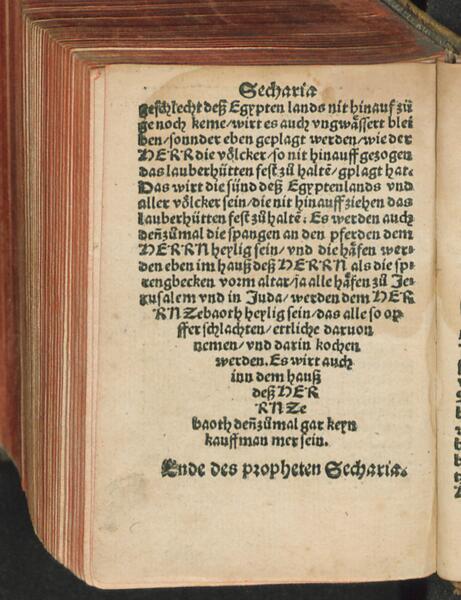 Secharia
geschlecht deß Egypten lands nit hinauf zů
ge noch keme/wirt es auch vngwässert blei
ben/sonnder eben geplagt werden/wie der
HERR die völcker/so nit hinauff gezogen
das lauberhütten fest zů haltē/gplagt hat.
Das wirt die sünd deß Egyptenlands vnd
aller völcker sein/die nit hinauff ziehen das
lauberhütten fest zů haltē: Es werden auch
deñzůmal die spangen an den pferden dem
HERRN heylig sein/vnd die häfen wer⸗
den eben im hauß deß HERRN als die sp⸗
rengbecken vorm altar/ja alle häfen zů Je⸗
rusalem vnd in Juda/werden dem HER
RN Zebaoth heylig sein/das alle so op
ffer schlachten/ettliche daruon
nemen/vnd darin kochen
werden. Es wirt auch
inn dem hauß
deß HER
RN Ze
baoth deñzůmal gar keyn
kauffman mer sein.
Ende des propheten Secharia.